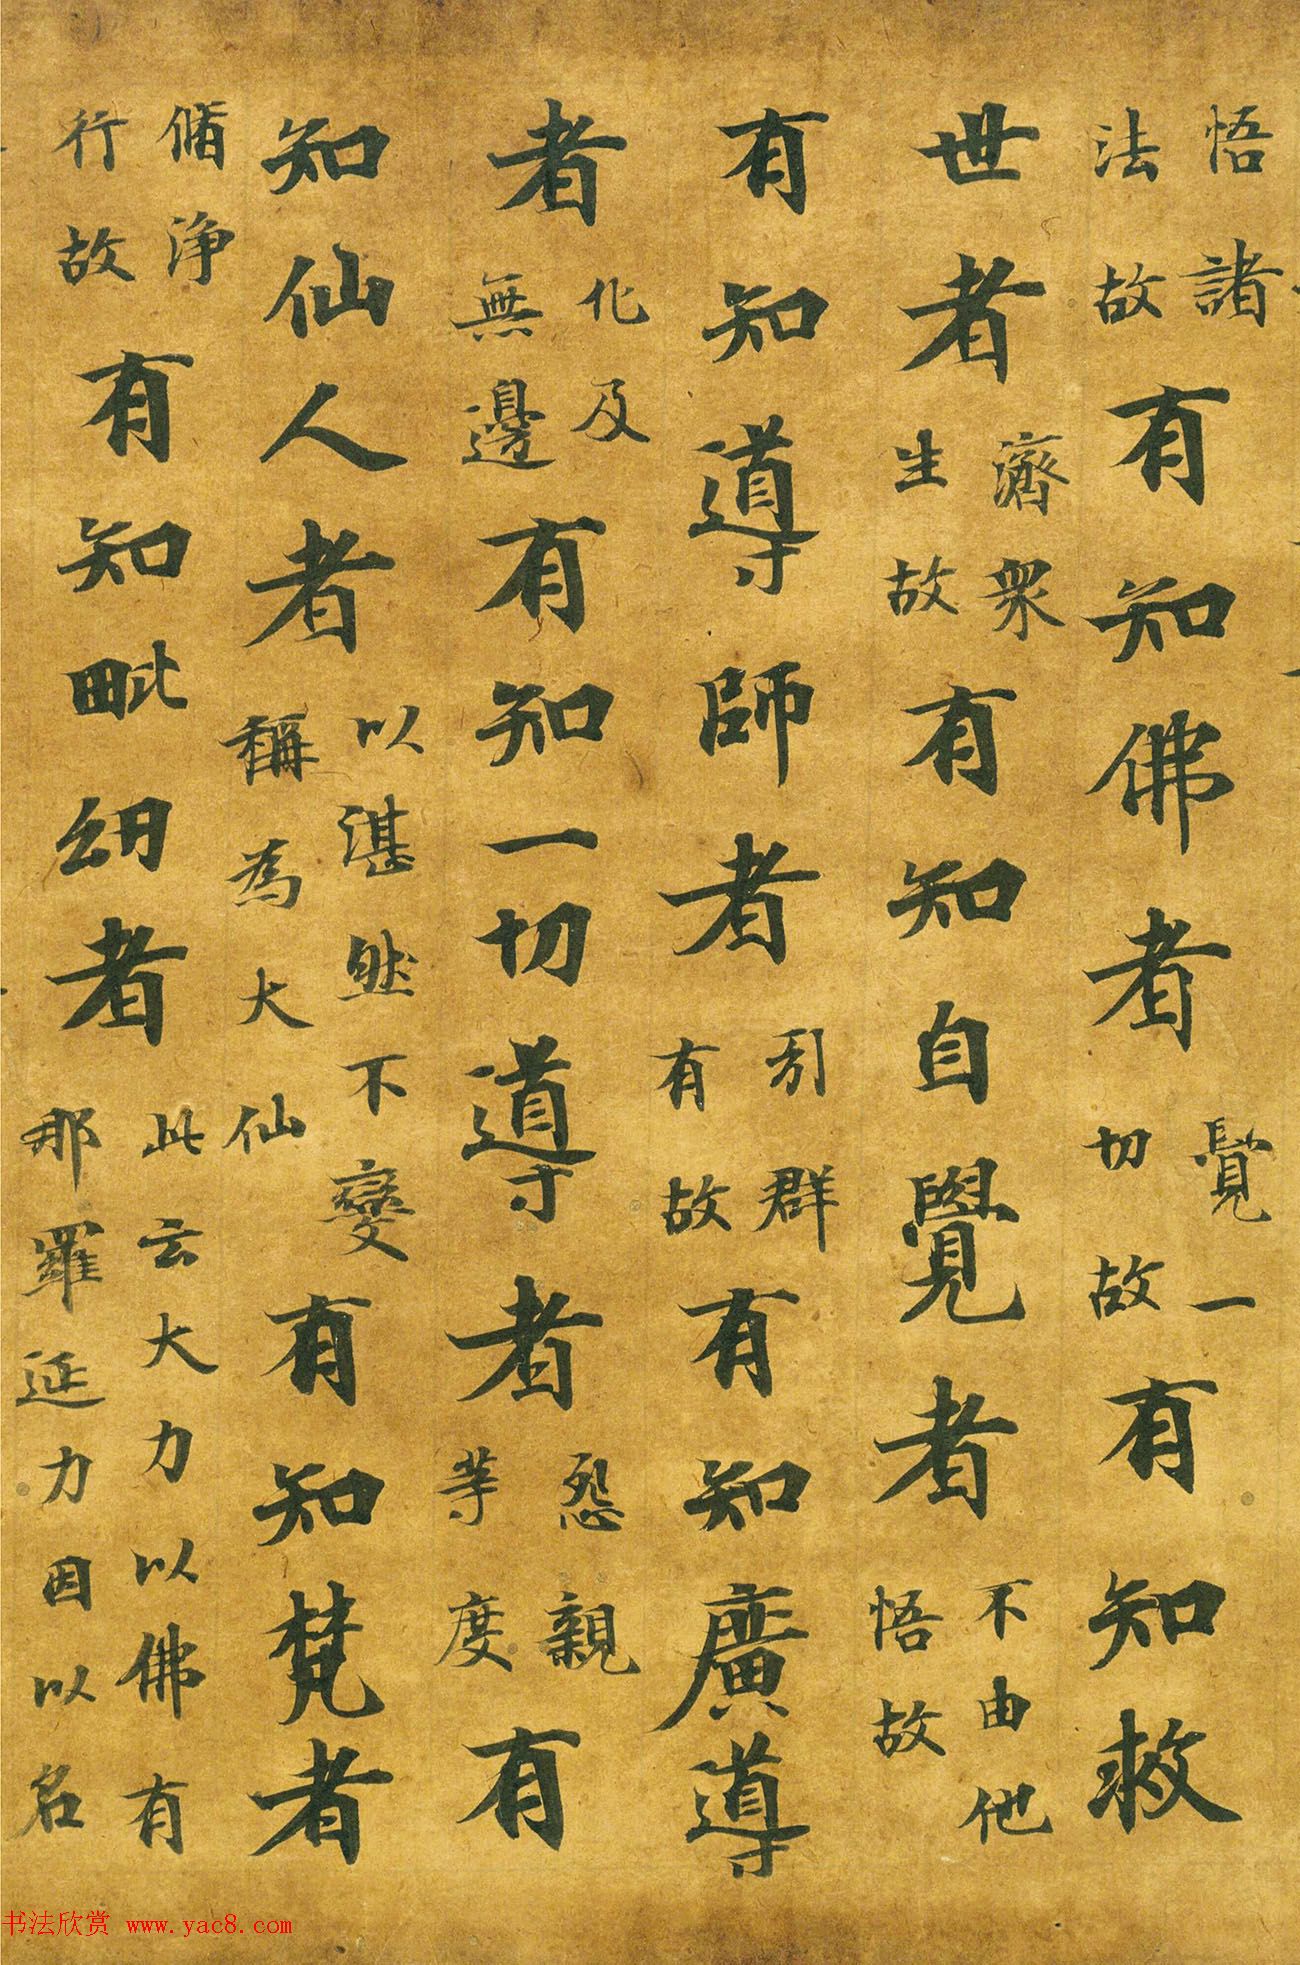 悟諸法故有知佛者覺一切故有知救
世者濟衆生故有知自覺者不由他悟故
有知導師者引群有故有知廣導
者化及無邊有知一切導者怨親等度有
知仙人者以湛然不變稱為大仙有知梵者
脩净行故有知毗紐者此云大力以佛有那羅延力因以名
书法欣赏 www.yac8.com